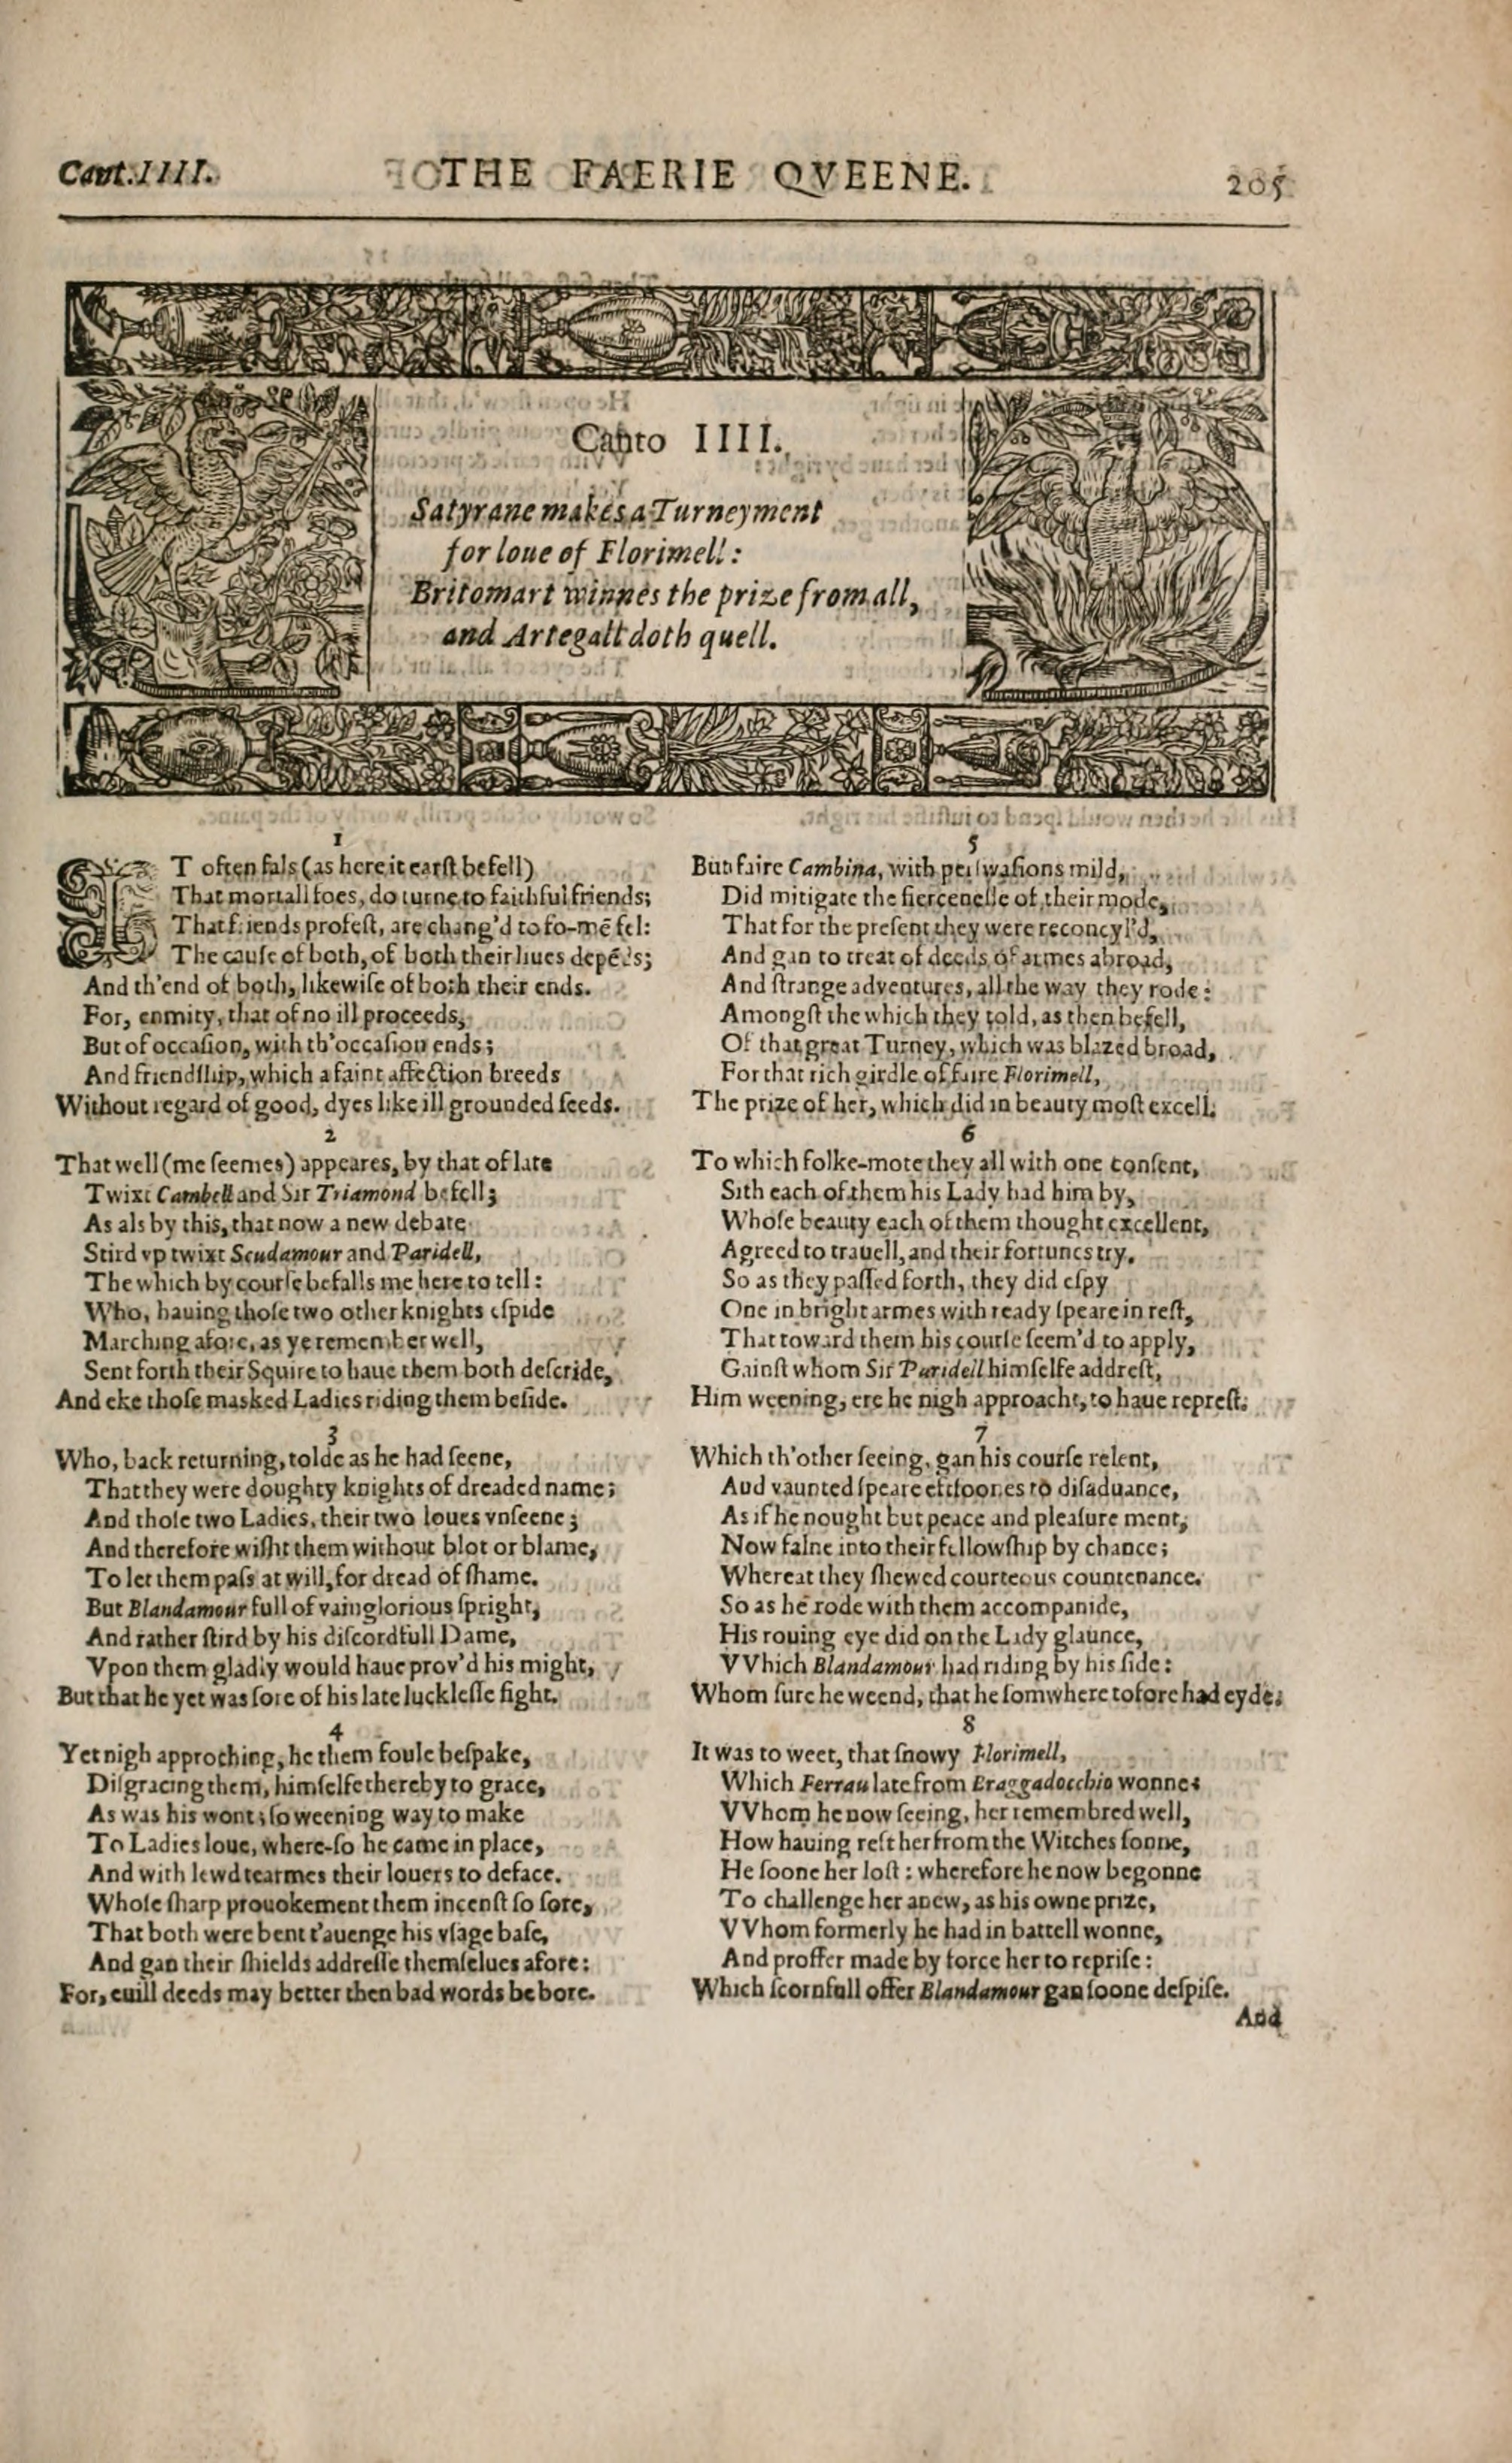 Cant. IIII.
THE FAERIE QVEENE.
205
Canto IIII.
Satyrane makes a Turneyment
for loue of Florimell:
Britomart winnes the prize from all,
and Artegall doth quell.
1
IT often fals (as here it earſt befell)
That mortall foes, do turne to faithful friends;
That friends profeſt, are chang'd to fo-mē fel:
The cauſe of both, of both their liues depēds;
And th'end of both, likewiſe of both their ends.
For, enmity, that of no ill proceeds,
But of occaſion, with th'occaſion ends;
And friendſhip, which a faint affection breeds
Without regard of good, dyes like ill grounded ſeeds.
2
That well (me ſeemes) appeares, by that of late
Twixt Cambell and Sir Triamond befell;
As als by this, that now a new debate
Stird vp twixt Scudamour and Paridell,
The which by courſe befalls me here to tell:
Who, hauing thoſe two other knights eſpide
Marching afore, as ye remember well,
Sent forth their Squire to haue them both deſcride,
And eke thoſe masked Ladies riding them beſide.
3
Who, back returning, tolde as he had ſeene,
That they were doughty knights of dreaded name;
And thoſe two Ladies, their two loues vnſeene;
And therefore wiſht them without blot or blame,
To let them paſs at will, for dread of ſhame.
But Blandamour full of vainglorious ſpright,
And rather ſtird by his diſcordfull Dame,
Vpon them gladly would haue prov'd his might,
But that he yet was ſore of his late luckleſſe fight.
4
Yet nigh approching, he them foule beſpake,
Diſgracing them, himſelfe thereby to grace,
As was his wont; ſo weening way to make
To Ladies loue, where-ſo he came in place,
And with lewd tearmes their louers to deface.
Whoſe ſharp prouokement them incenſt ſo ſore,
That both were bent t'auenge his vſage baſe,
And gan their ſhields addreſſe themſelues afore:
For, euill deeds may better then bad words be bore.
5
But faire Cambina, with perſwaſions mild,
Did mitigate the fierceneſſe of their mode,
That for the preſent they were reconcyl'd,
And gan to treat of deeds of armes abroad,
And ſtrange adventures, all the way they rode:
Amongſt the which they told, as then befell,
Of that great Turney, which was blazed broad,
For that rich girdle of faire Florimell,
The prize of her, which did in beauty moſt excell.
6
To which folke-mote they all with one conſent,
Sith each of them his Lady had him by,
Whoſe beauty each of them thought excellent,
Agreed to trauell, and their fortunes try.
So as they paſſed forth, they did eſpy
One in bright armes with ready ſpeare in reſt,
That toward them his courſe ſeem'd to apply,
Gainſt whom Sir Paridell himſelfe addreſt,
Him weening, ere he nigh approacht, to haue repreſt.
7
Which th'other ſeeing, gan his courſe relent,
Aud vaunted ſpeare eftſoones to diſaduance,
As if he nought but peace and pleaſure ment,
Now falne into their fellowſhip by chance;
Whereat they ſhewed courteous countenance.
So as he rode with them accompanide,
His rouing eye did on the Lady glaunce,
VVhich Blandamour had riding by his ſide:
Whom ſure he weend, that he ſomwhere tofore had eyde.
8
It was to weet, that ſnowy Florimell,
Which Ferrau late from Braggadocchio wonne:
VVhom he now ſeeing, her remembred well,
How hauing reft her from the Witches ſonne,
He ſoone her loſt: wherefore he now begonne
To challenge her anew, as his owne prize,
VVhom formerly he had in battell wonne,
And proffer made by force her to repriſe:
Which ſcornfull offer Blandamour gan ſoone deſpiſe.
And